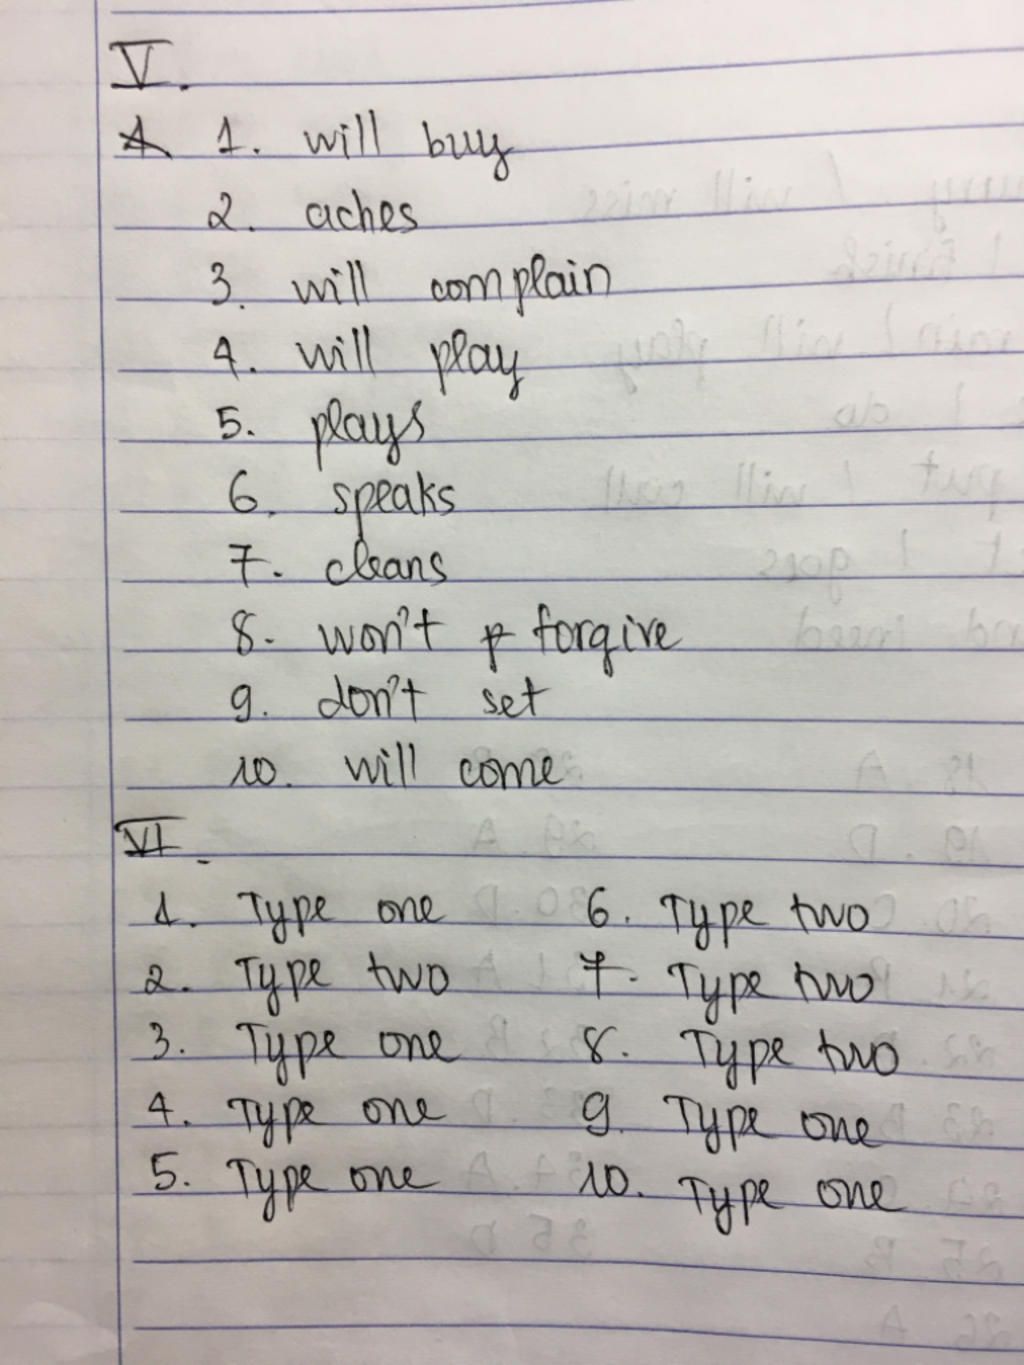 V.
1. will buy
2. aches
3. will complain
4. will play
5. plays
6. speaks
7. cleans
8. won't forgive
9. don't set
10. will come
VI.
1. Type one 6. Type two
2. Type two 7. Type two
3. Type one 8. Type two
4. Type one 9. Type one
5. Type one 10. Type one